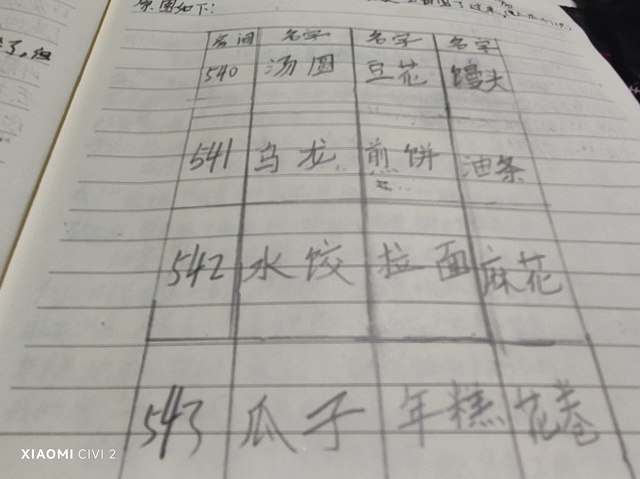 原图如下：
房间 名字 名字 名字
540 汤圆 豆花 馒头
541 乌龙 煎饼 油条
542 水饺 拉面 麻花
543 瓜子 年糕 花卷
XIAOMI CIVI 2